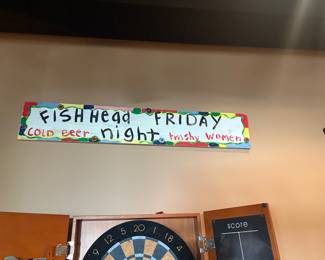 FISH Head FRIDAY
COLD Beer night trashy women
SCORE
5 20 1
12 18
9 4